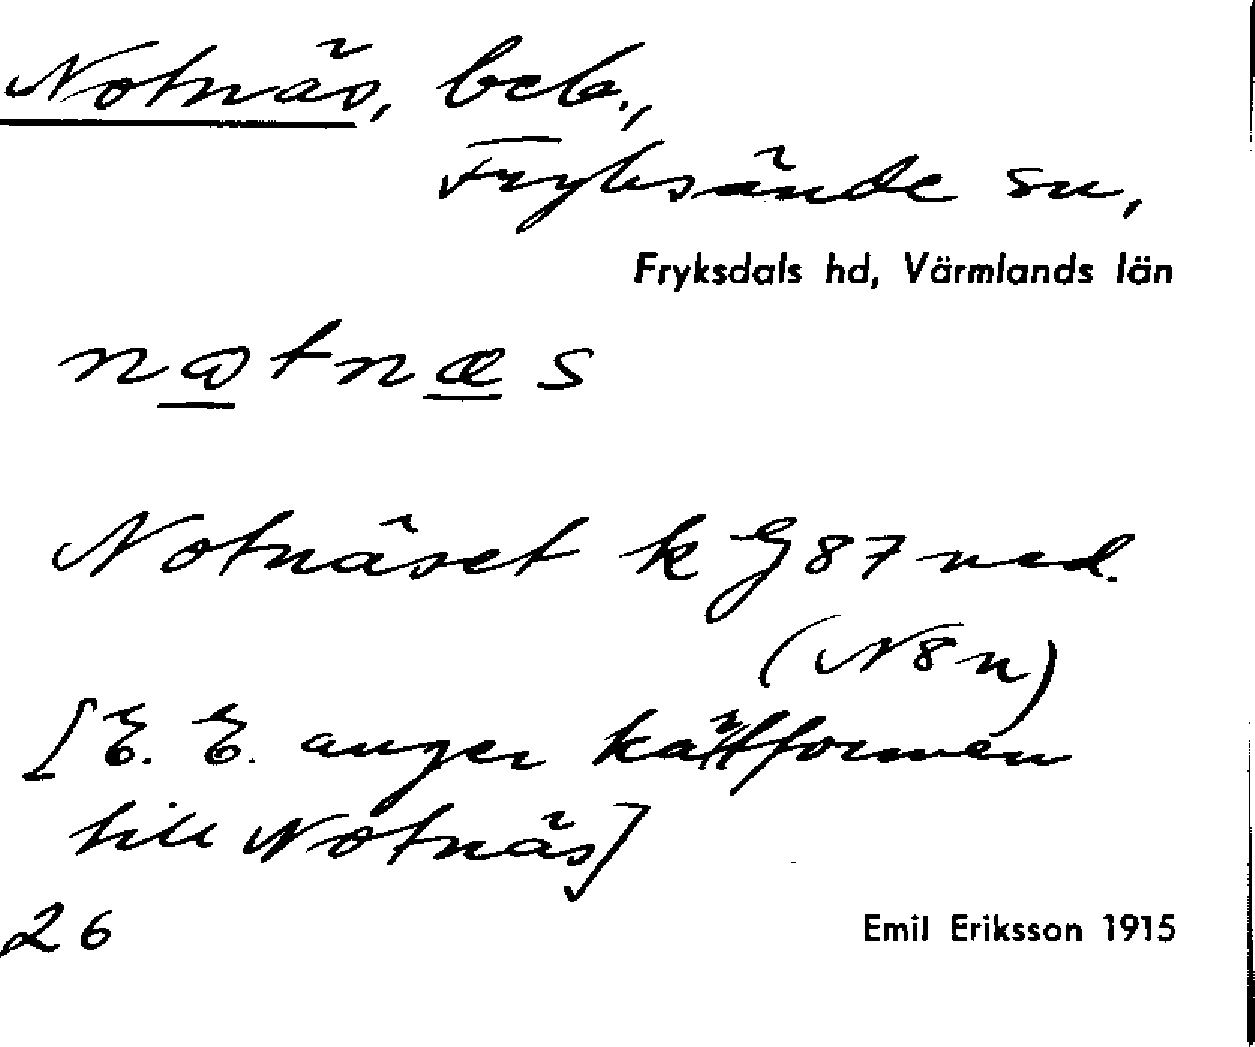 Notnäs, beb.,
Fryksände sn,
Fryksdals hd, Värmlands län
nωtnæs
Notnäset k G 87 ned.
(N8n)
[E. E. anger kartformen
till Notnäs]
26
Emil Eriksson 1915